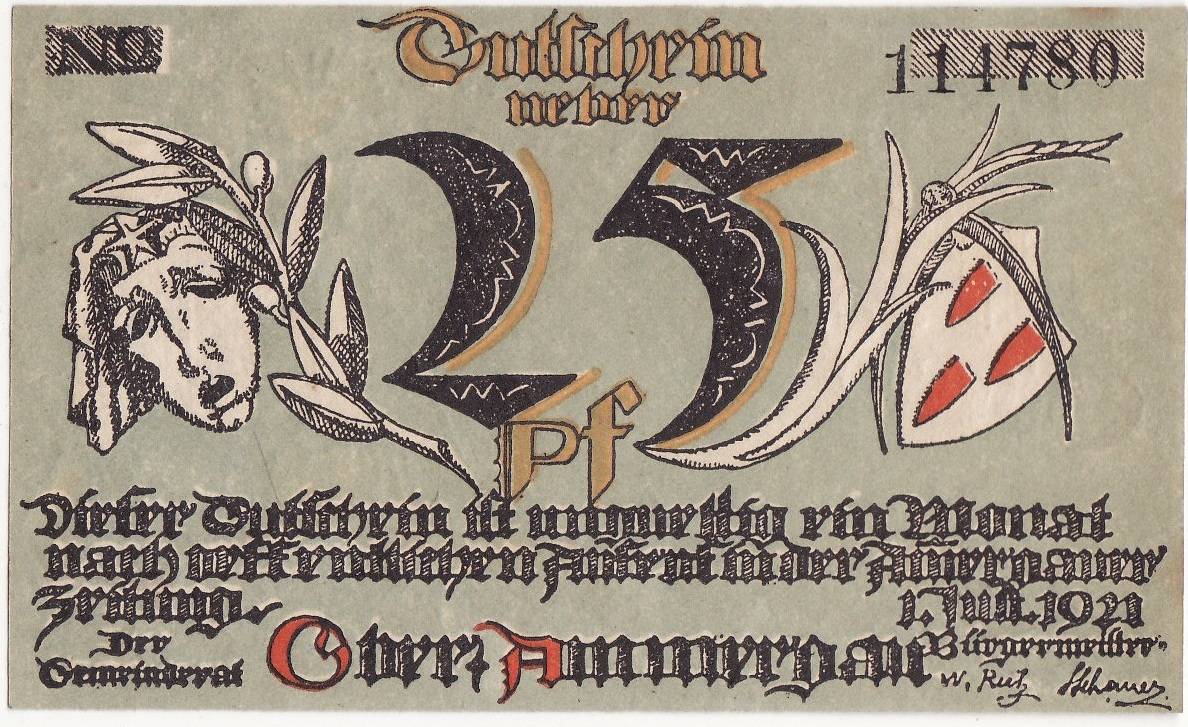 No 114780
Gutschein
ueber
25
Pf
Dieser Gutschein ist unguueltig ein Monat
nach oeffentlichen Inserat in der Am̄ergauer
Zeitung. 1. Juli. 1921
Der
Gemeinderat Ober-Ammergau Bürgermeister:
W. Rutz